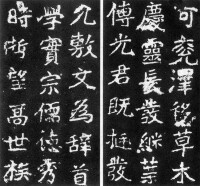 可堯澤草木
慶靈長發繼葉
傳光君既挺發
凡敷文為辭首
學實宗儒德秀
時哲望高世族